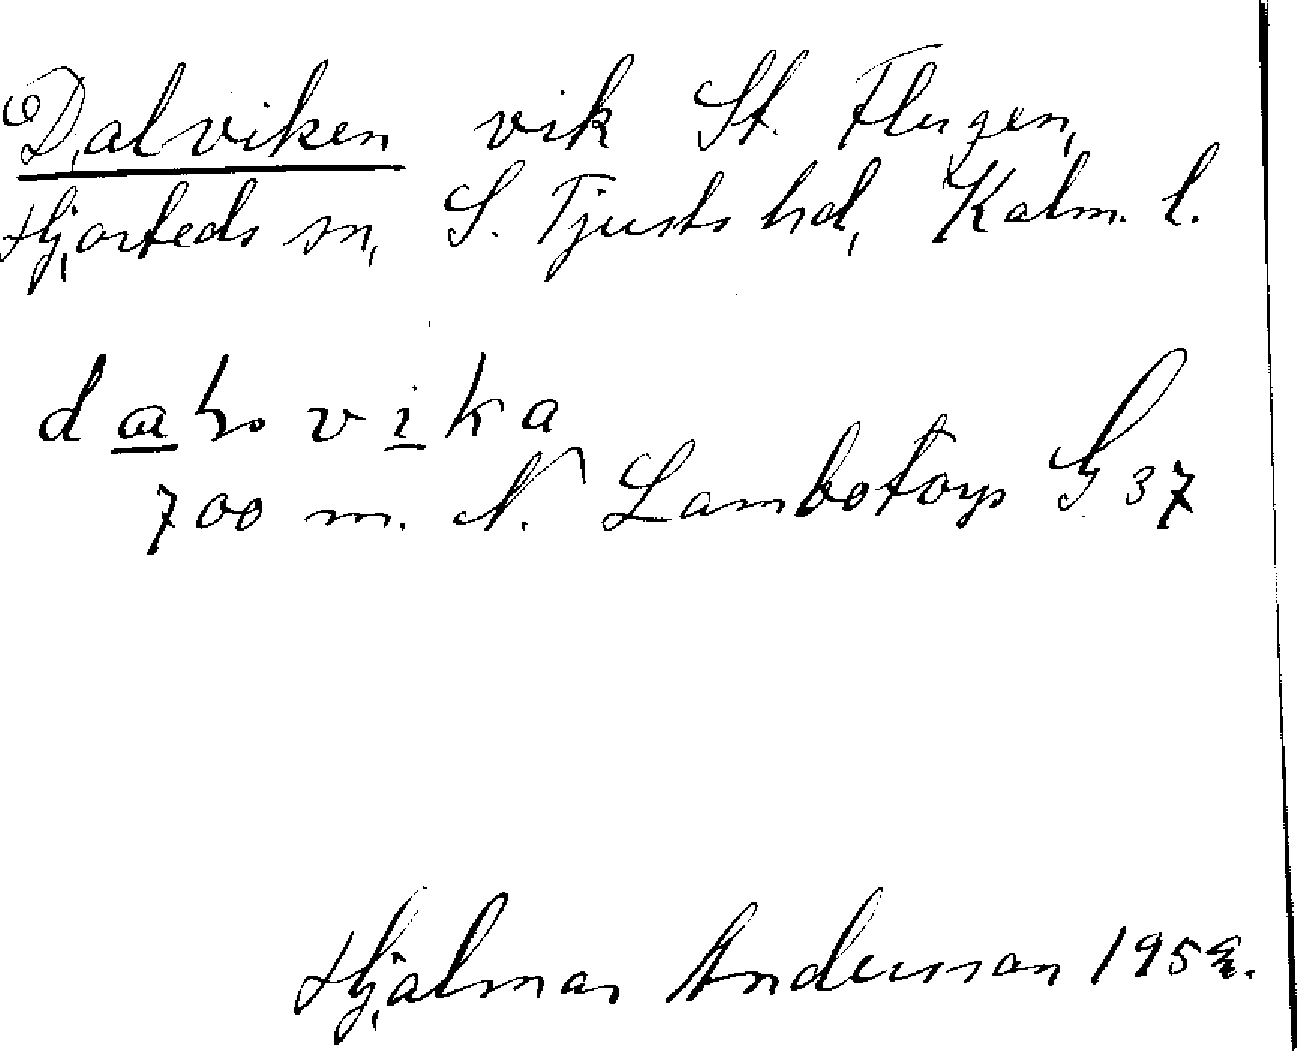 Dalviken vik St. Flugen,
Hjorteds sn, S. Tjusts hd, Kalm. l.
vika
700 m. N. Lambotorp G 37
Hjalmar Andersson